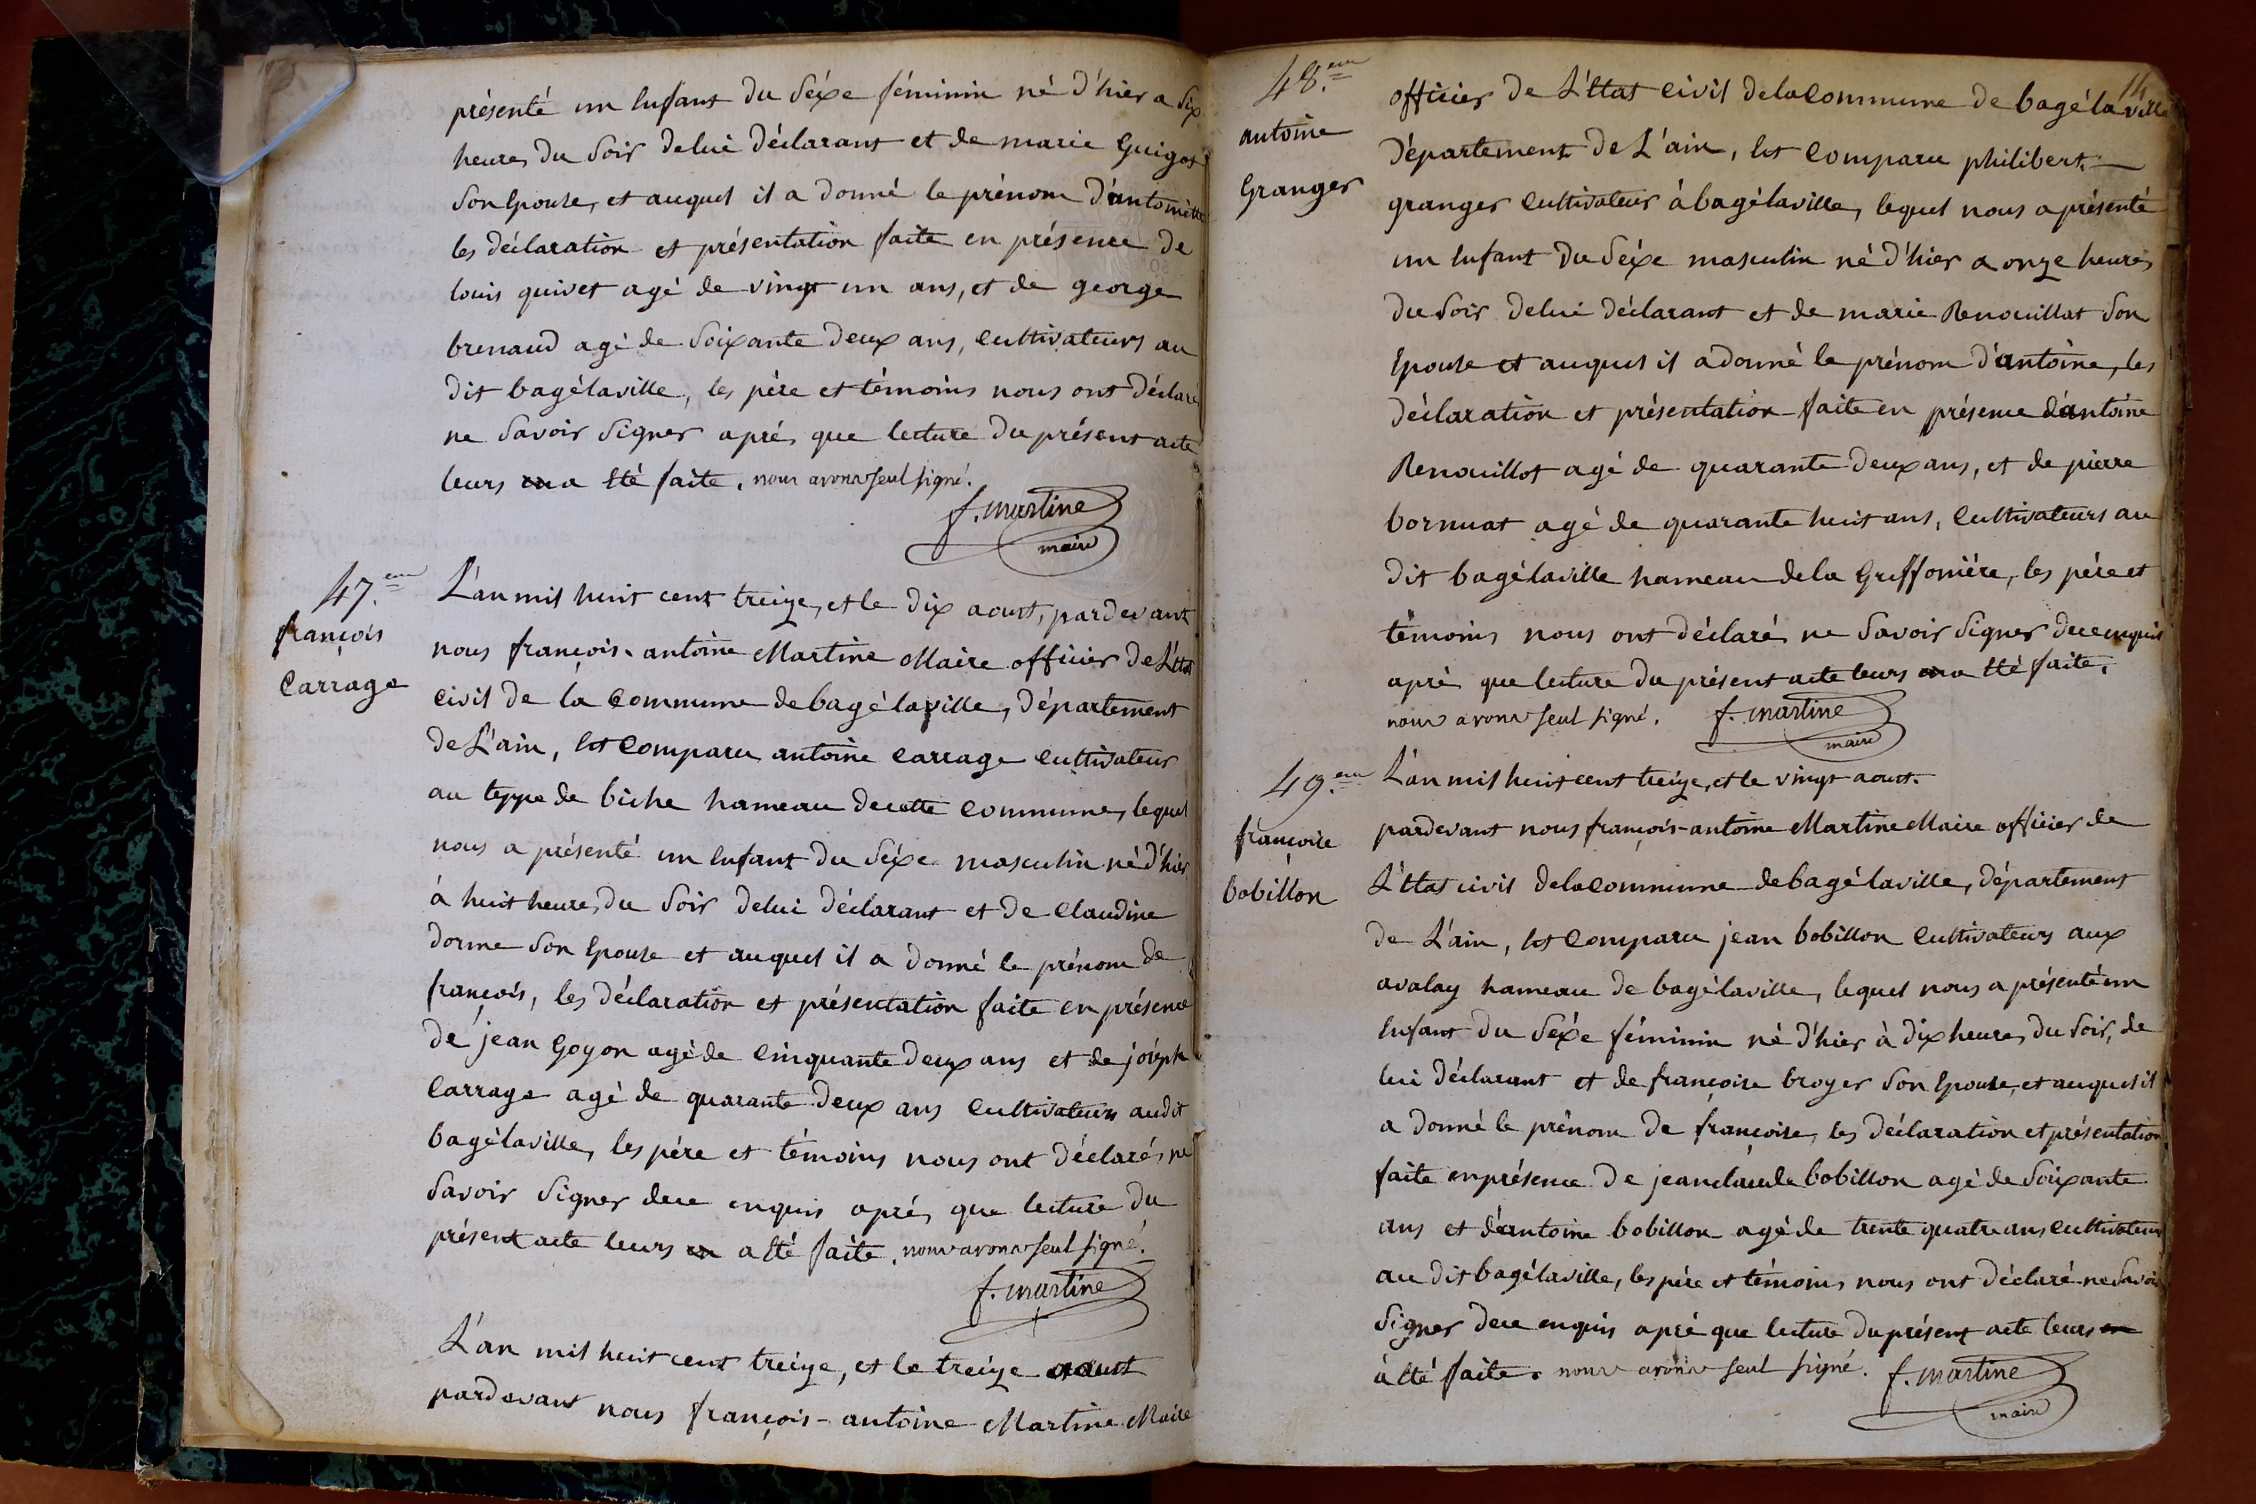 présenté un Enfant du Séxe féminin né d'hier a Six
heures du Soir de lui déclarant et de marie Guigot
Son Epouse, et auquel il a donné le prénom d'antoinette
les déclaration et présentation faite en présence de
louis quivet agé de vingt un ans, et de george
brenaud agé de Soixante deux ans, Cultivateurs au
dit bagélaville, les pére et témoins nous ont déclaré
ne Savoir Signer aprés que lecture du présent acte
leurs a Eté faite. nous avons seul signé.
f. martine
maire
47.eme
françois
Carrage
L'an mil huit cent treize, et le dix aoust, pardevant
nous françois-antoine Martine Maire officier de L'Etat
civil de la Commune de bagé laville, département
de L'ain, Est Comparu antoine Carrage Cultivateur
au teppe de biche hameau de cette Commune, lequel
nous a présenté un Enfant du Séxe masculin né d'hier
à huit heures du Soir de lui déclarant et de Claudine
dorme Son Epouse et auquel il a donné le prénom de
françois, les déclaration et présentation faite en présence
de jean Goyon agé de Cinquante deux ans et de joseph
Carrage agé de quarante deux ans Cultivateurs audit
bagélaville, les pére et témoins nous ont déclarés ne
Savoir Signer de ce enquis aprés que lecture du
présent acte leurs en a Eté faite. nous avons seul signé.
f. martine
L'an mil huit cent treize, et le treize aoust
pardevant nous françois-antoine Martine Maire
14
48.eme
antoine
Granger
officier de L'Etat Civil de la Commune de bagé la ville
département de L'ain, Est Comparu philibert
granger Cultivateur à bagélaville, lequel nous a présenté
un Enfant du Séxe masculin né d'hier a onze heures
du Soir de lui déclarant et de marie Renouillat Son
Epouse et auquel il a donné le prénom d'antoine, les
déclaration et présentation faite en présence d'antoine
Renouillot agé de quarante deux ans, et de pierre
bornuat agé de quarante huit ans, Cultivateurs au
dit bagélaville hameau de la Griffoniére, les pére et
témoins nous ont déclaré ne Savoir Signer de ce enquis
aprés que lecture du présent acte leurs a Eté faite.
nous avons seul signé. f. martine
maire
49.eme
françoise
bobillon
L'an mil huit cent treize, et le vingt aoust.
pardevant nous françois-antoine Martine Maire officier de
L'Etat civil de la Commune de bagé laville, département
de L'ain, Est Comparu jean bobillon Cultivateurs aux
avalay hameau de bagélaville, lequel nous a présenté un
Enfant du Séxe féminin né d'hier à dix heures du Soir, de
lui déclarant et de françoise broyer Son Epouse, et auquel il
a donné le prénom de françoise, les déclaration et présentation
faite en présence de jean claude bobillon agé de Soixante
ans et d'antoine bobillon agé de trente quatre ans Cultivateurs
au dit bagélaville, les pére et témoins nous ont déclaré ne Savoir
Signer de ce enquis apré que lecture du présent acte leurs en
à Eté faite. nous avons seul signé. f. martine
maire